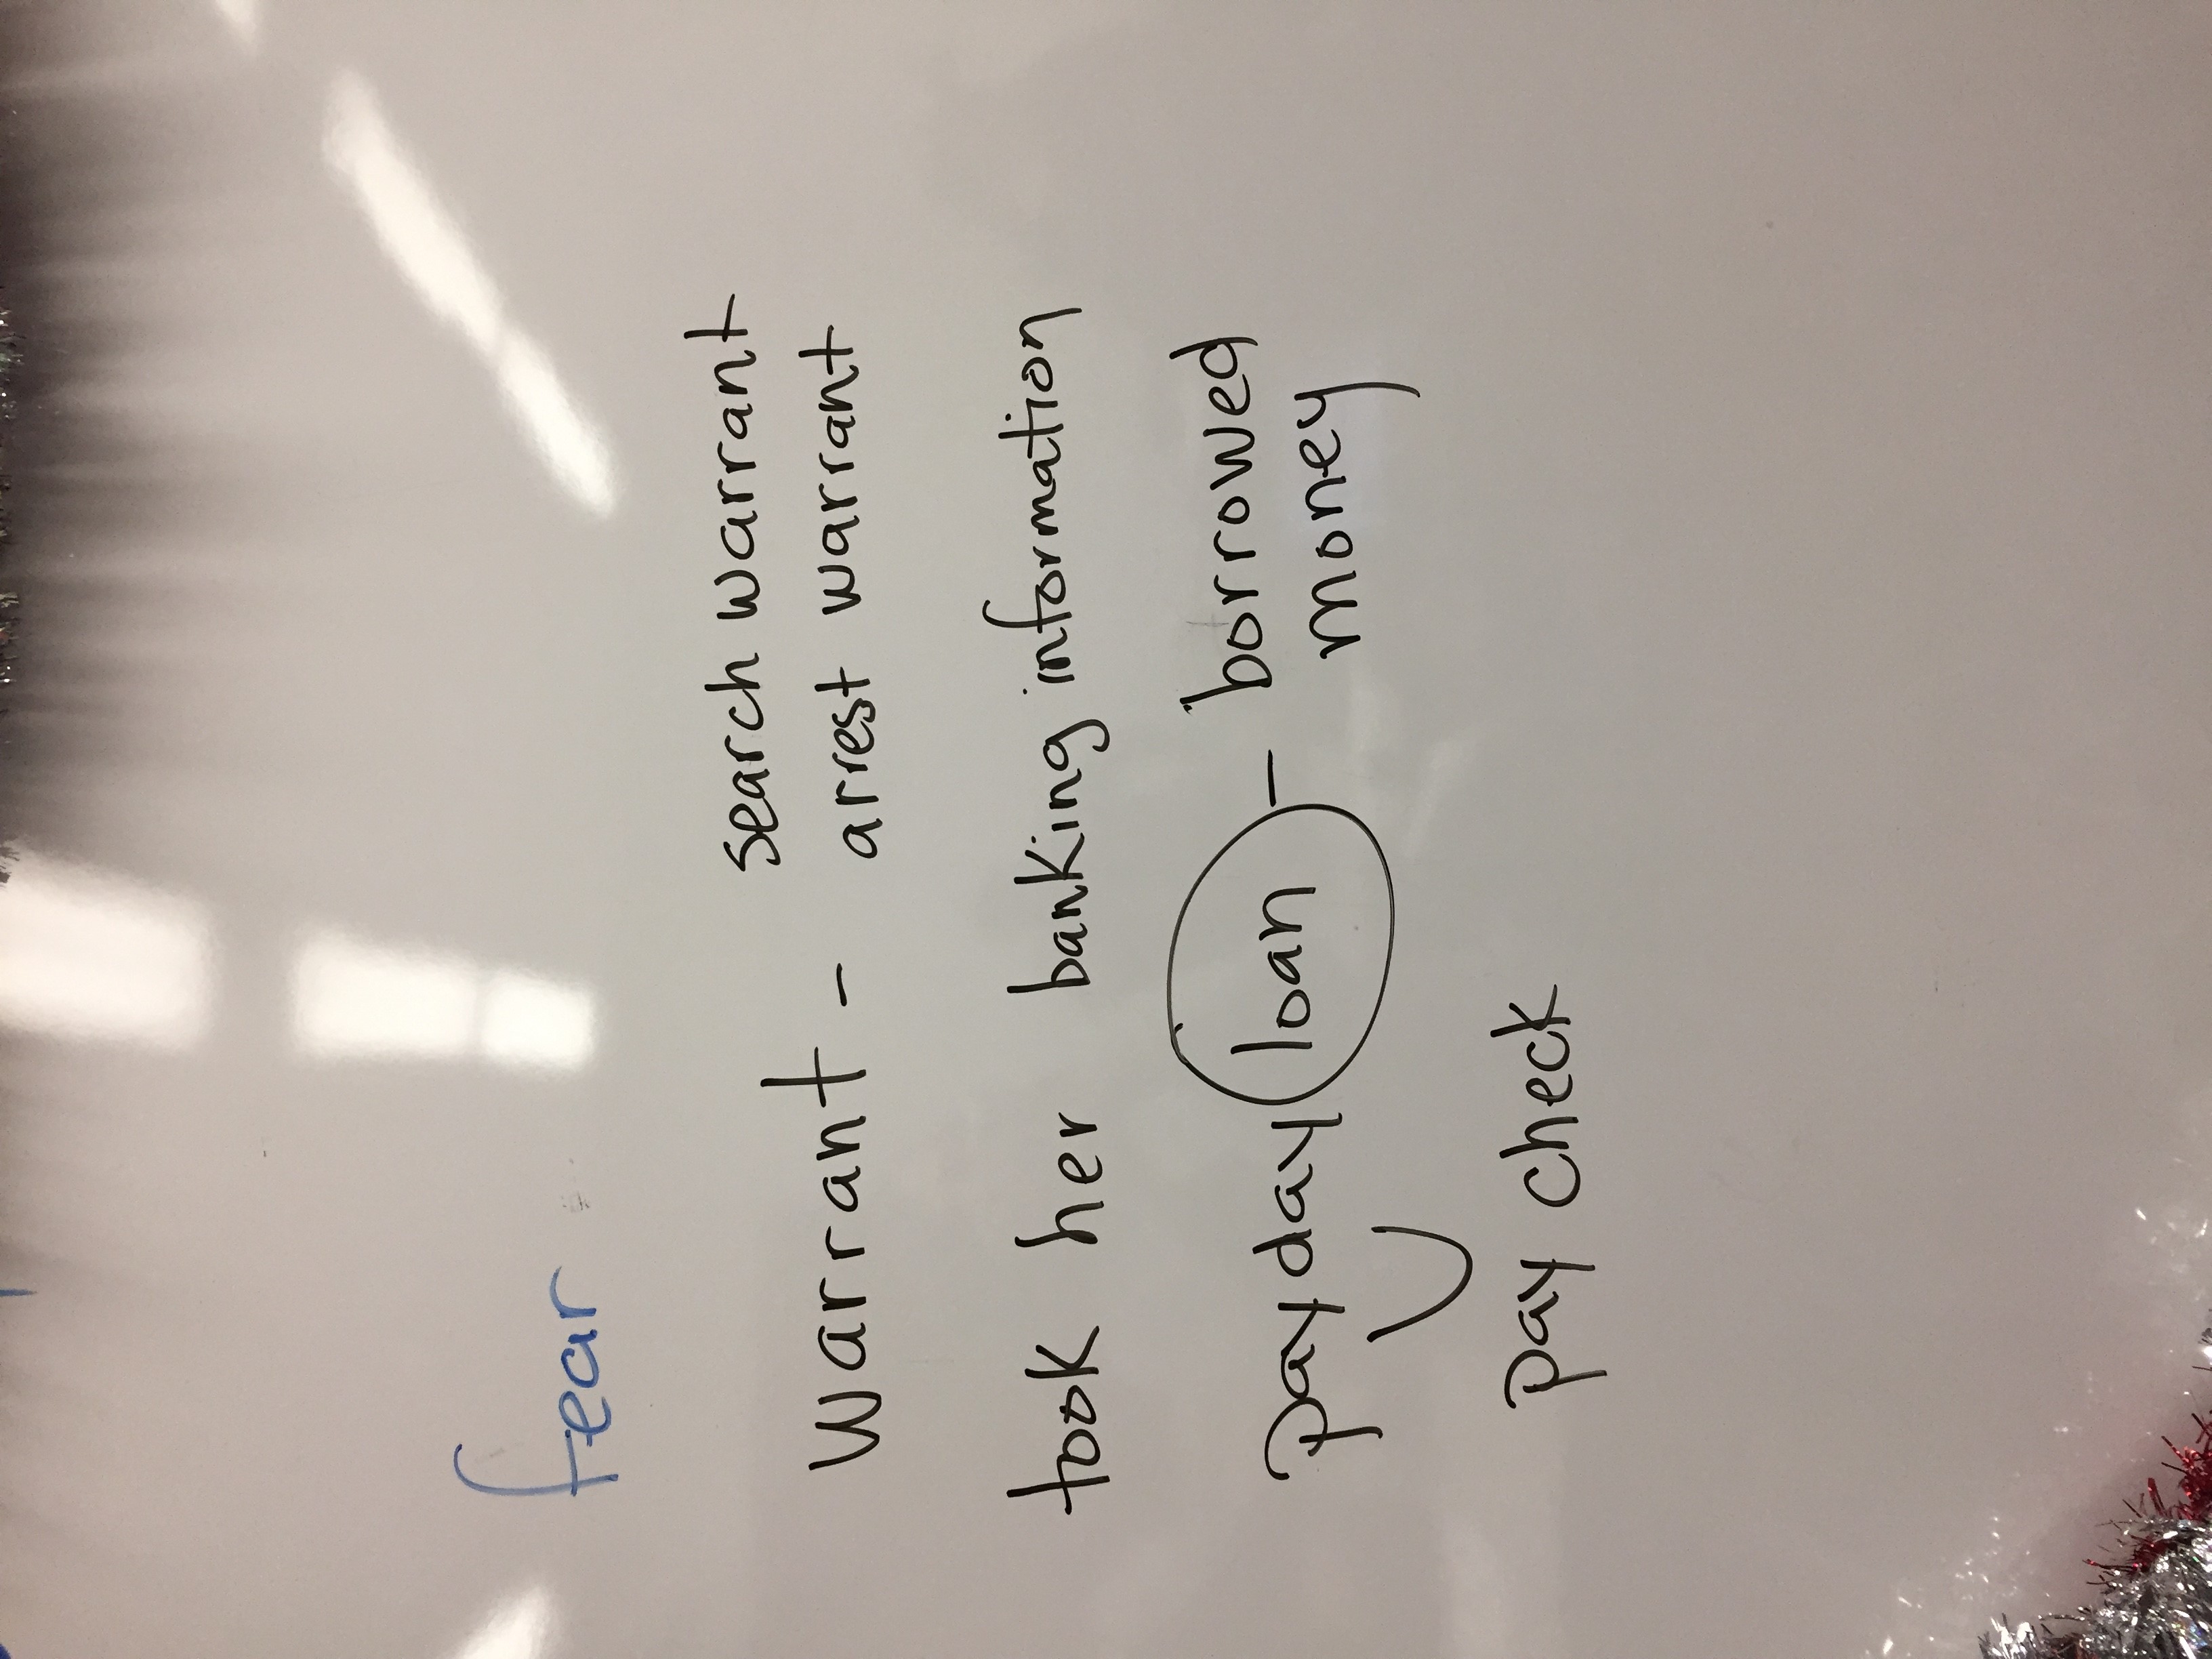 fear
search warrant
warrant - arrest warrant
took her banking information
payday loan - borrowed
money
pay check